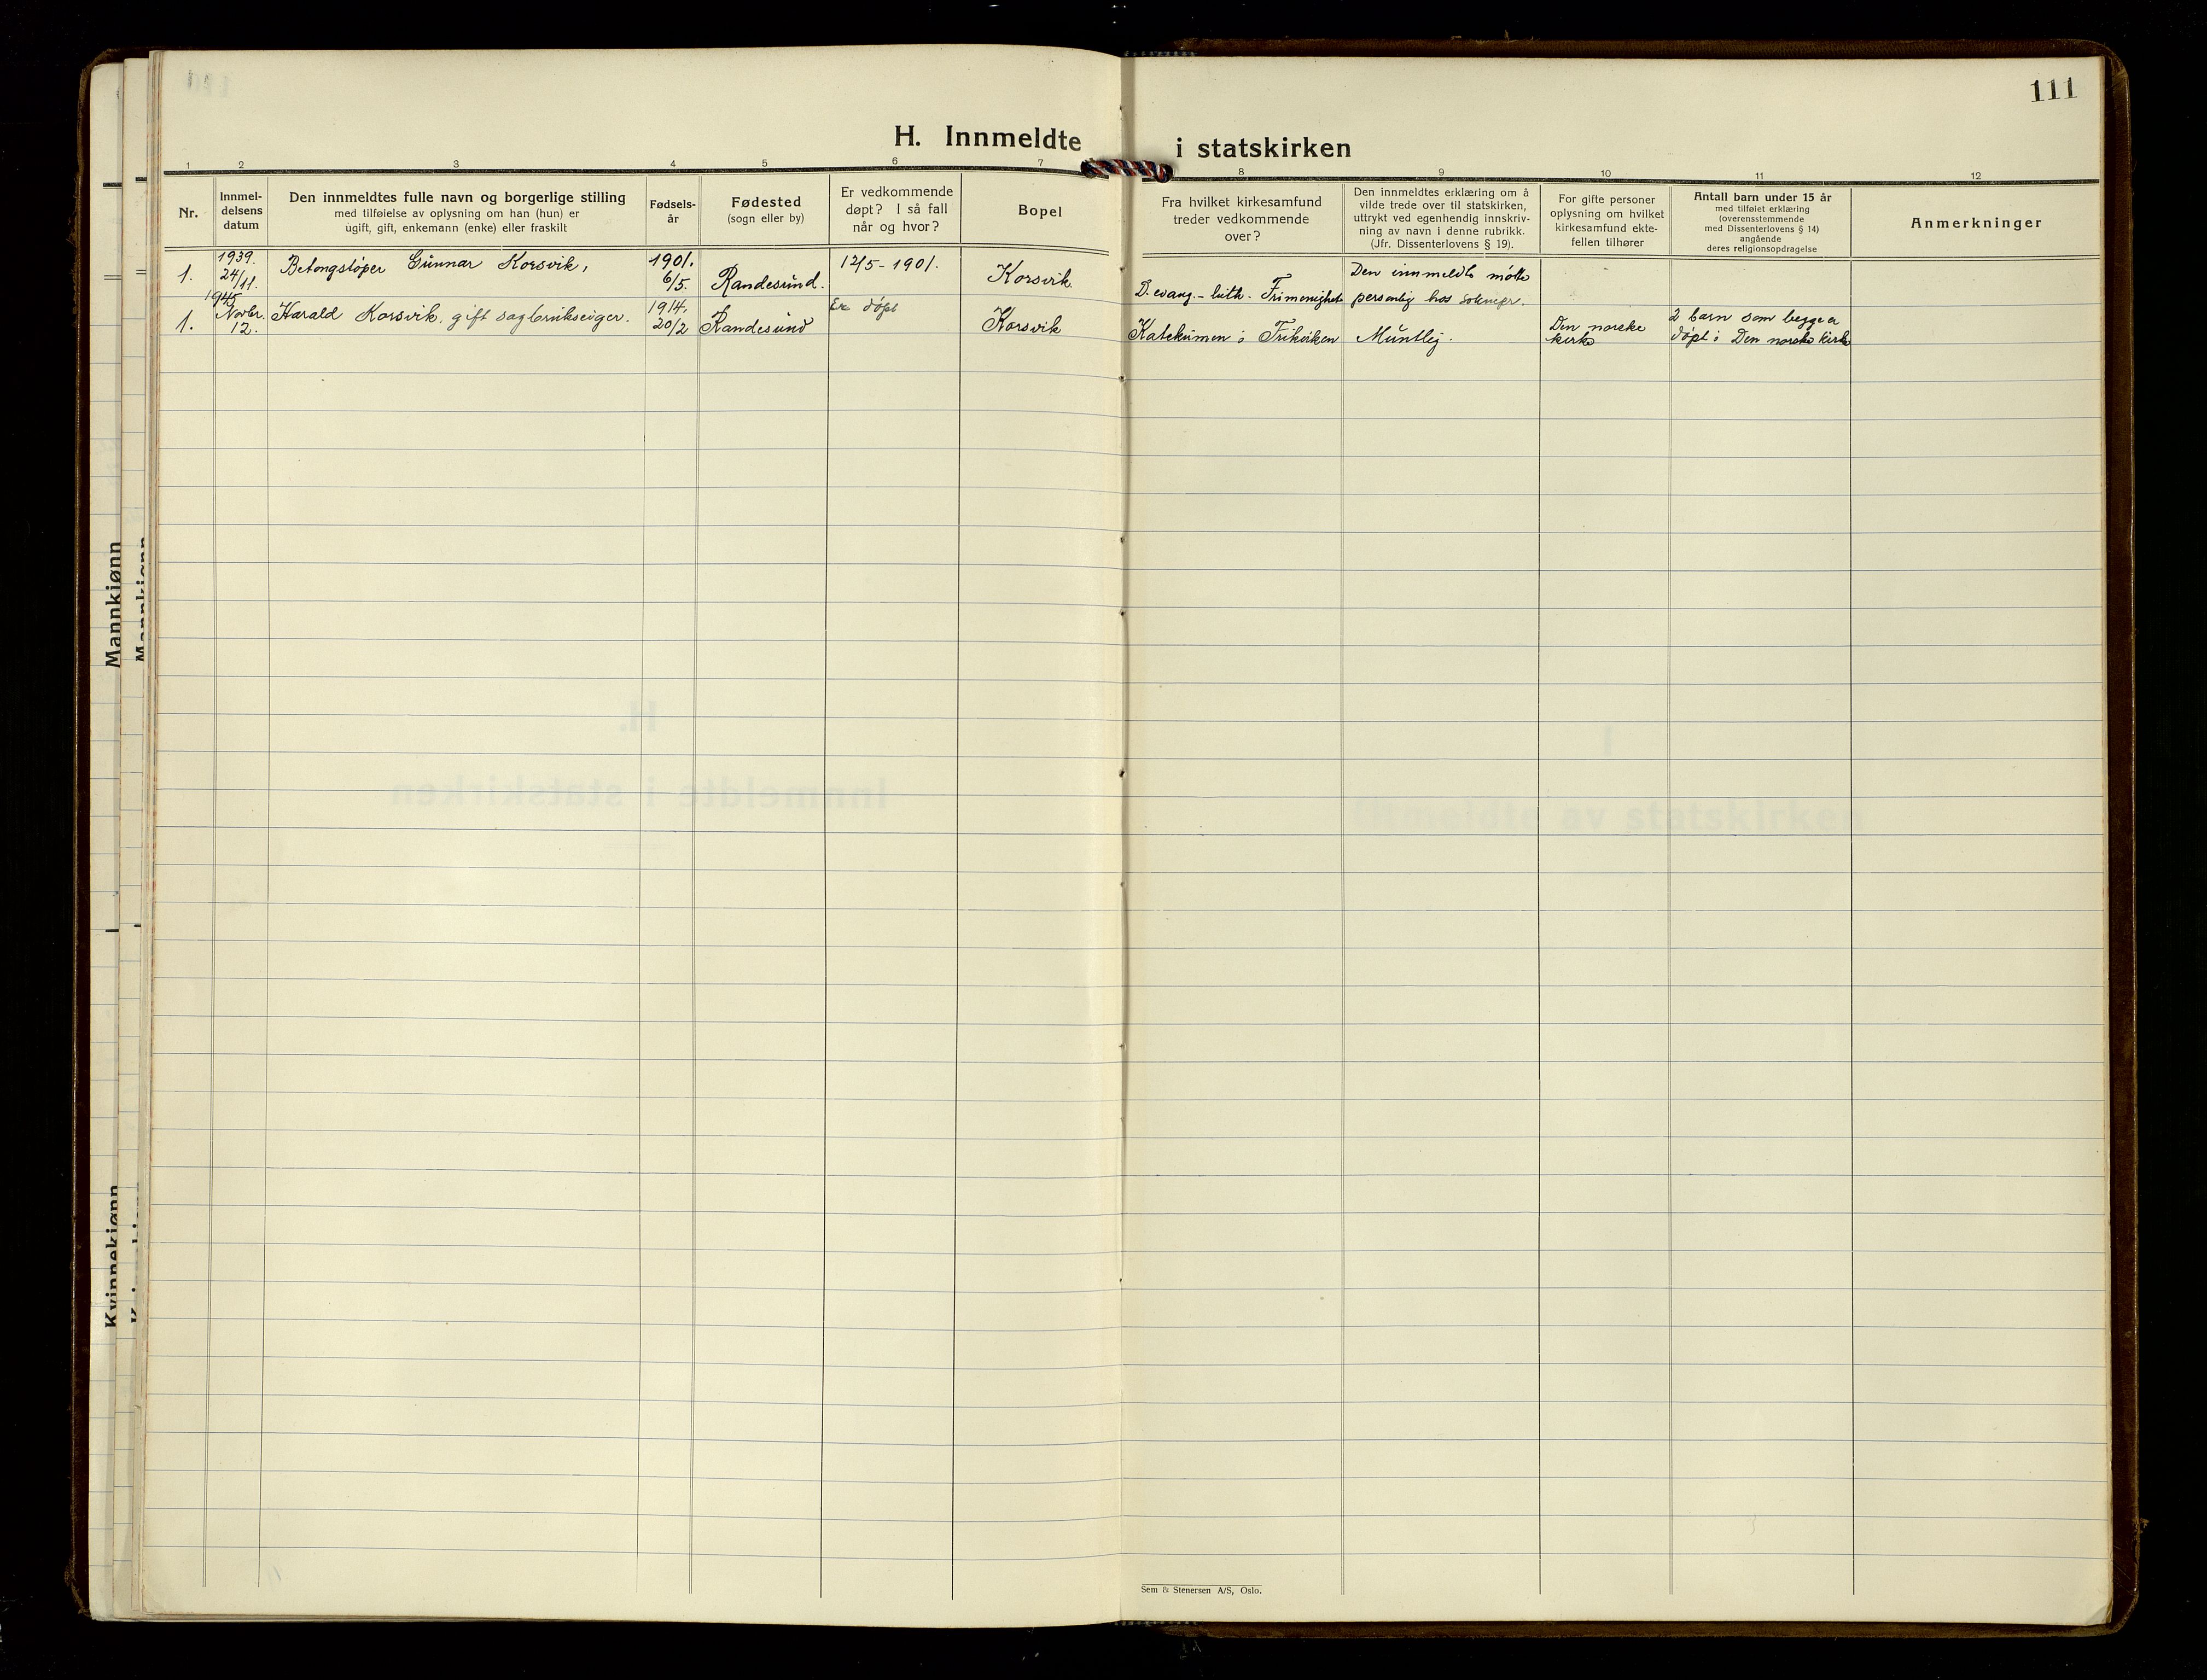 111
H. Innmeldte i statskirken
1 2 3 4 5 6 7 8 9 10 11 12
Nr.
Innmel-
delsens
datum
Den innmeldtes fulle navn og borgerlige stilling
med tilføielse av oplysning om han (hun) er
ugift, gift, enkemann (enke) eller fraskilt
Fødsels-
år
Fødested
(sogn eller by)
Er vedkommende
døpt? I så fall
når og hvor?
Bopel
Fra hvilket kirkesamfund
treder vedkommende
over?
Den innmeldtes erklæring om å
vilde trede over til statskirken,
uttrykt ved egenhendig innskriv-
ning av navn i denne rubrikk.
(Jfr. Dissenterlovens § 19).
For gifte personer
oplysning om hvilket
kirkesamfund ekte-
fellen tilhører
Antall barn under 15 år
med tilføiet erklæring
(overensstemmende
med Dissenterlovens § 14)
angående
deres religionsopdragelse
Anmerkninger
1.
1939.
24/11.
Betongstøper Gunnar Korsvik,
1901.
6/5.
Randesund.
12/5-1901.
Korsvik.
D. evang.-luth. Frimenighet
Den innmeldte møtte
personlig hos soknepr.
1.
1945
Novbr.
12.
Harald Korsvik, gift sagbrukseiger.
1914.
20/2
Randesund
Er døpt
Korsvik
Katekumen i Frikirken
Muntlig.
Den norske
kirke
2 barn som begge er
døpt i Den norske kirke
Mannkjønn
Mannkjønn
Kvinnekjønn
H.
Innmeldte i statskirken
I
Utmeldte av statskirken
Sem & Stenersen A/S, Oslo.